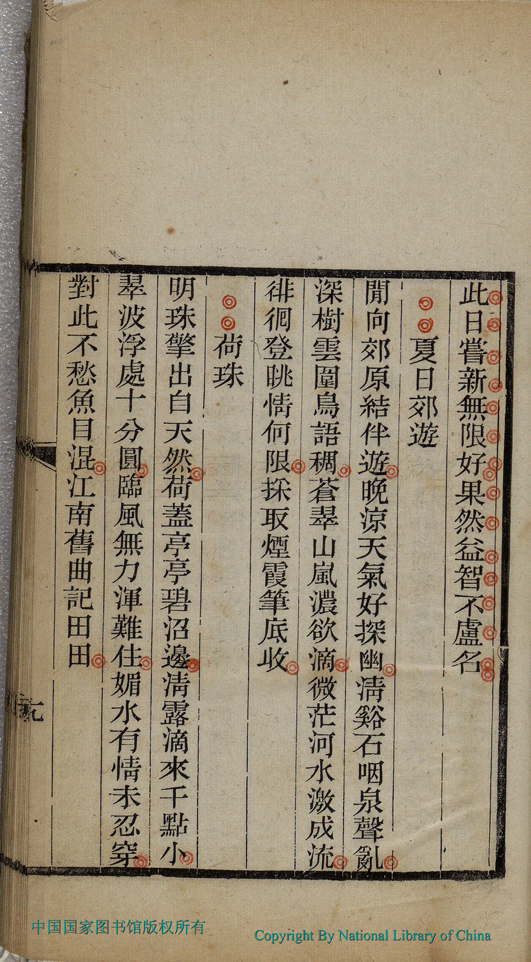 此日嘗新無限好果然益智不盧名
夏日郊遊
閒向郊原結伴遊晚涼天氣好探幽淸谿石咽泉聲亂
深樹雲圍鳥語稠蒼翠山嵐濃欲滴微茫河水激成流
徘徊登眺情何限採取煙霞筆底收
荷珠
明珠擎出自天然荷蓋亭亭碧沼邊淸露滴來千點小
翠波浮處十分圓臨風無力渾難住媚水有情未忍穿
對此不愁魚目混江南舊曲記田田
中国国家图书馆版权所有
Copyright By National Library of China